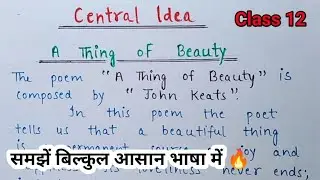 Central Idea
Class 12
A Thing of Beauty
The poem "A Thing of Beauty" is
composed by "John Keats".
In this poem the poet
tells us that a beautiful thing
is permanent source joy and
loveliness never ends;
समझें बिल्कुल आसान भाषा में 🔥